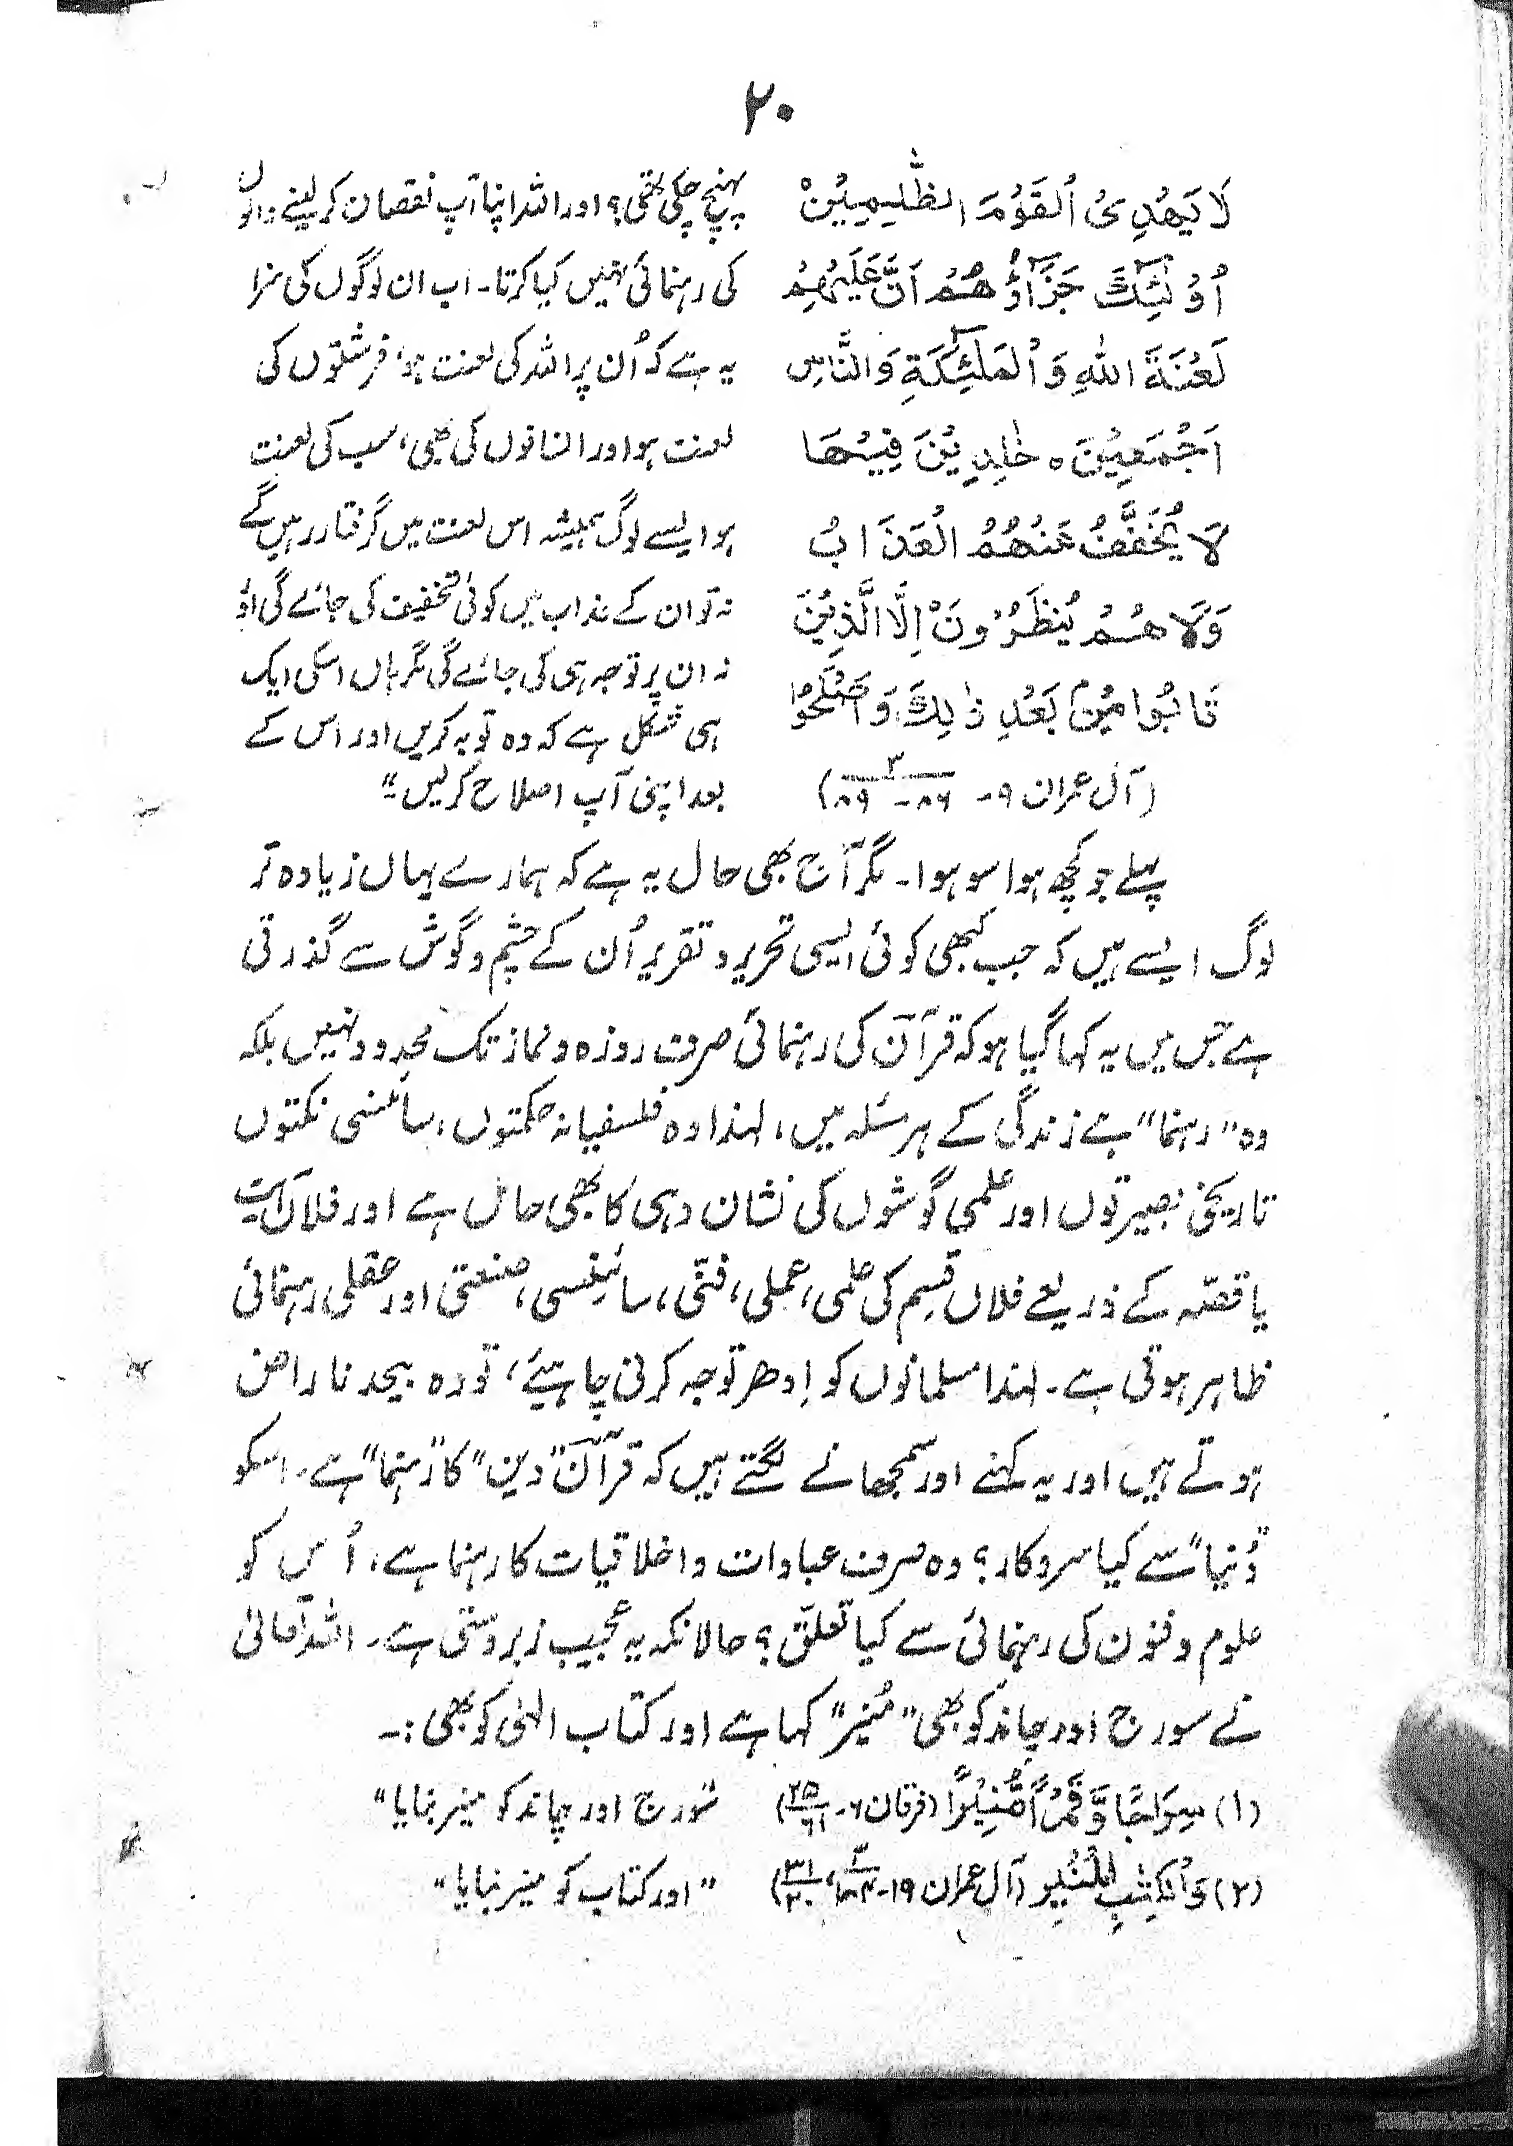 ۲۰
لَا یَهْدِی الْقَوْمَ الظّٰلِمِیْنَ
اُولٰٓئِكَ جَزَآؤُهُمْ اَنَّ عَلَیْهِمْ
لَعْنَةَ اللّٰهِ وَالْمَلٰٓئِكَةِ وَالنَّاسِ
اَجْمَعِیْنَ ه خٰلِدِیْنَ فِیْهَا
لَا یُخَفَّفُ عَنْهُمُ الْعَذَابُ
وَلَا هُمْ یُنْظَرُوْنَ اِلَّا الَّذِیْنَ
تَابُوْا مِنْۢ بَعْدِ ذٰلِكَ وَاَصْلَحُوْا
(آل عمران ۹- ۳/۸۶-۸۹)
پہنچ چکی تھی؟ اور اللہ اپنا آپ نقصان کر لینے والوں
کی رہنمائی نہیں کیا کرتا۔ اب ان لوگوں کی سزا
یہ ہے کہ اُن پر اللہ کی لعنت ہو، فرشتوں کی
لعنت ہو اور انسانوں کی بھی، سب کی لعنت
ہو ایسے لوگ ہمیشہ اس لعنت میں گرفتار رہیں گے
نہ تو ان کے عذاب میں کوئی تخفیف کی جائے گی اور
نہ ان پر توجہ ہی کی جائے گی مگر ہاں اسکی ایک
ہی شکل ہے کہ وہ توبہ کریں اور اس کے
بعد اپنی آپ اصلاح کرلیں"
پہلے جو کچھ ہوا سو ہوا۔ مگر آج بھی حال یہ ہے کہ ہمارے یہاں زیادہ تر
لوگ ایسے ہیں کہ جب کبھی کوئی ایسی تحریر و تقریر اُن کے چشم و گوش سے گذرتی
ہے جس میں یہ کہا گیا ہو کہ قرآن کی رہنمائی صرف روزہ و نماز تک محدود نہیں بلکہ
وہ "رہنما" ہے زندگی کے ہر مسئلہ میں، لہٰذا وہ فلسفیانہ حکمتوں، سائنسی نکتوں
تاریخی بصیرتوں اور علمی گوشوں کی نشان دہی کا بھی حامل ہے اور فلاں آیت
یا قصّہ کے ذریعے فلاں قسم کی علمی، عملی، فنّی، سائنسی، صنعتی اور عقلی رہنمائی
ظاہر ہوتی ہے۔ لہٰذا مسلمانوں کو اِدھر توجہ کرنی چاہیئے، تو وہ بیحد ناراض
ہوتے ہیں اور یہ کہنے اور سمجھانے لگتے ہیں کہ قرآن "دین" کا "رہنما" ہے۔ اسکو
"دُنیا" سے کیا سروکار؟ وہ صرف عبادات و اخلاقیات کا رہنما ہے، اُس کو
علوم و فنون کی رہنمائی سے کیا تعلّق؟ حالانکہ یہ عجیب زبردستی ہے۔ اللہ تعالیٰ
نے سورج اور چاند کو بھی "مُنیر" کہا ہے اور کتاب الہٰی کو بھی:۔
(۱) سِرَاجًا وَّقَمَرًا مُّنِیْرًا (فرقان ۶- ۲۵/۶۱) "سورج اور چاند کو منیر بنایا"
(۲) وَالْكِتٰبِ الْمُنِیْرِ (آل عمران ۱۹- ۳/۱۸۴، ۳۱/۲۰) "اور کتاب کو منیر بنایا"